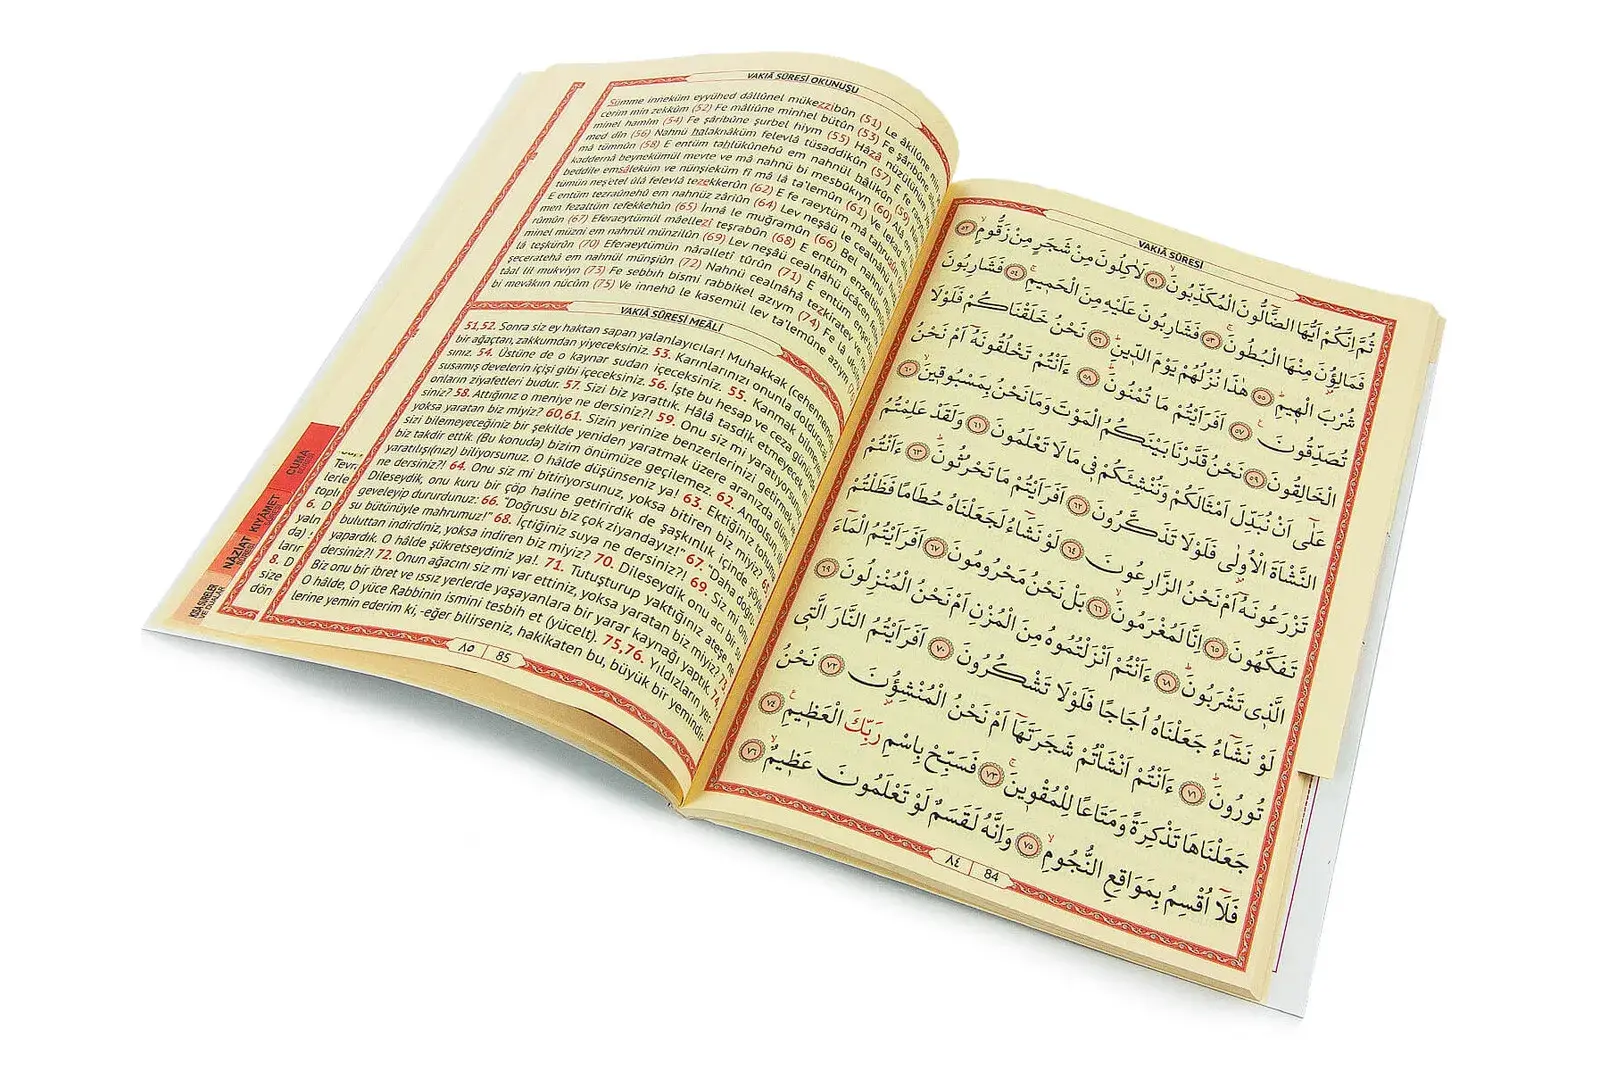 VAKIÂ SÛRESİ
ثُمَّ اِنَّكُمْ اَيُّهَا الضَّٓالُّونَ الْمُكَذِّبُونَ ﴿٥١﴾ لَاٰكِلُونَ مِنْ شَجَرٍ مِنْ زَقُّومٍ ﴿٥٢﴾
فَمَالِؤُنَ مِنْهَا الْبُطُونَ ﴿٥٣﴾ فَشَارِبُونَ عَلَيْهِ مِنَ الْحَمِيمِ ﴿٥٤﴾ فَشَارِبُونَ
شُرْبَ الْهِيمِ ﴿٥٥﴾ هٰذَا نُزُلُهُمْ يَوْمَ الدِّينِ ﴿٥٦﴾ نَحْنُ خَلَقْنَاكُمْ فَلَوْلَا
تُصَدِّقُونَ ﴿٥٧﴾ اَفَرَاَيْتُمْ مَا تُمْنُونَ ﴿٥٨﴾ ءَاَنْتُمْ تَخْلُقُونَهُٓ اَمْ نَحْنُ
الْخَالِقُونَ ﴿٥٩﴾ نَحْنُ قَدَّرْنَا بَيْنَكُمُ الْمَوْتَ وَمَا نَحْنُ بِمَسْبُوقِينَ ﴿٦٠﴾
عَلٰٓى اَنْ نُبَدِّلَ اَمْثَالَكُمْ وَنُنْشِئَكُمْ فِي مَا لَا تَعْلَمُونَ ﴿٦١﴾ وَلَقَدْ عَلِمْتُمُ
النَّشْاَةَ الْاُولٰى فَلَوْلَا تَذَكَّرُونَ ﴿٦٢﴾ اَفَرَاَيْتُمْ مَا تَحْرُثُونَ ﴿٦٣﴾ ءَاَنْتُمْ
تَزْرَعُونَهُٓ اَمْ نَحْنُ الزَّارِعُونَ ﴿٦٤﴾ لَوْ نَشَٓاءُ لَجَعَلْنَاهُ حُطَامًا فَظَلْتُمْ
تَفَكَّهُونَ ﴿٦٥﴾ اِنَّا لَمُغْرَمُونَ ﴿٦٦﴾ بَلْ نَحْنُ مَحْرُومُونَ ﴿٦٧﴾ اَفَرَاَيْتُمُ الْمَٓاءَ
الَّذِي تَشْرَبُونَ ﴿٦٨﴾ ءَاَنْتُمْ اَنْزَلْتُمُوهُ مِنَ الْمُزْنِ اَمْ نَحْنُ الْمُنْزِلُونَ ﴿٦٩﴾
لَوْ نَشَٓاءُ جَعَلْنَاهُ اُجَاجًا فَلَوْلَا تَشْكُرُونَ ﴿٧٠﴾ اَفَرَاَيْتُمُ النَّارَ الَّتِي
تُورُونَ ﴿٧١﴾ ءَاَنْتُمْ اَنْشَأْتُمْ شَجَرَتَهَٓا اَمْ نَحْنُ الْمُنْشِؤُنَ ﴿٧٢﴾ نَحْنُ
جَعَلْنَاهَا تَذْكِرَةً وَمَتَاعًا لِلْمُقْوِينَ ﴿٧٣﴾ فَسَبِّحْ بِاسْمِ رَبِّكَ الْعَظِيمِ ﴿٧٤﴾
فَلَٓا اُقْسِمُ بِمَوَاقِعِ النُّجُومِ ﴿٧٥﴾ وَاِنَّهُ لَقَسَمٌ لَوْ تَعْلَمُونَ عَظِيمٌ ﴿٧٦﴾
٨٤ | 84
VAKIÂ SÛRESİ OKUNUŞU
Sümme inneküm eyyühed dâllûnel mükezzibûn (51) Le âkilûne
cerim min zekkûm (52) Fe mâliûne minhel bütûn (53) Fe şâribûne
minel hamîm (54) Fe şâribûne şurbel hiym (55) Hâzâ nüzülühüm
med dîn (56) Nahnü halaknâküm felevlâ tüsaddikûn (57) E fe
mâ tümnûn (58) E entüm tahlükûnehû em nahnül hâlikûn (59)
kaddernâ beynekümül mevte ve mâ nahnü bi mesbûkıyn (60) Alâ en
beddile emsâleküm ve nünşieküm fî mâ lâ ta'lemûn (61) Ve lekad
tümün neş'etel ûlâ felevlâ tezekkerûn (62) E fe raeytüm mâ tahrusûn
E entüm tezraûnehû em nahnüz zâriûn (64) Lev neşâü le cealnâhü
men fezaltüm tefekkehûn (65) İnnâ le muğramûn (66) Bel nahnü
rûmûn (67) Eferaeytümül mâellezî teşrabûn (68) E entüm enzeltümûhü
minel müzni em nahnül münzilûn (69) Lev neşâü cealnâhü ücâcen
lâ teşkürûn (70) Eferaeytümün nâralletî tûrûn (71) E entüm
şeceratehâ em nahnül münşiûn (72) Nahnü cealnâhâ tezkiratev ve
tâal lil mukviyn (73) Fe sebbih bismi rabbikel azıym (74) Fe lâ
bi mevâkıın nücûm (75) Ve innehû le kasemül lev ta'lemûne azıym
VAKIÂ SÛRESİ MEÂLİ
51,52. Sonra siz ey haktan sapan yalanlayıcılar! Muhakkak (cehennemde)
bir ağaçtan, zakkumdan yiyeceksiniz. 53. Karınlarınızı onunla
sınız. 54. Üstüne de o kaynar sudan içeceksiniz. 55. Kanmak bilmeyen,
susamış develerin içişi gibi içeceksiniz. 56. İşte bu hesap ve ceza gününde
onların ziyafetleri budur. 57. Sizi biz yarattık. Hâlâ tasdik etmeyecek
siniz? 58. Attığınız o meniye ne dersiniz?! 59. Onu siz mi yaratıyorsunuz,
yoksa yaratan biz miyiz? 60,61. Sizin yerinize benzerlerinizi getirmek
sizi bilemeyeceğiniz bir şekilde yeniden yaratmak üzere aranızda ölümü
biz takdir ettik. (Bu konuda) bizim önümüze geçilemez. 62. Andolsun,
yaratılışı(nızı) biliyorsunuz. O hâlde düşünseniz ya! 63. Ektiğiniz tohuma
ne dersiniz?! 64. Onu siz mi bitiriyorsunuz, yoksa bitiren biz miyiz? 65.
Dileseydik, onu kuru bir çöp haline getirirdik de şaşkınlık içinde şöyle
geveleyip dururdunuz: 66. "Doğrusu biz çok ziyandayız!" 67. "Daha doğrusu
su bütünüyle mahrumuz!" 68. İçtiğiniz suya ne dersiniz?! 69. Siz mi onu
buluttan indirdiniz, yoksa indiren biz miyiz? 70. Dileseydik onu acı bir su
yapardık. O hâlde şükretseydiniz ya!. 71. Tutuşturup yaktığınız ateşe ne
dersiniz?! 72. Onun ağacını siz mi var ettiniz, yoksa yaratan biz miyiz? 73.
Biz onu bir ibret ve ıssız yerlerde yaşayanlara bir yarar kaynağı yaptık. 74.
O hâlde, O yüce Rabbinin ismini tesbih et (yücelt). 75,76. Yıldızların yer-
lerine yemin ederim ki, -eğer bilirseniz, hakikaten bu, büyük bir yemindir.
٨٥ | 85
CUMA
KIYÂMET
NÂZİAT
KISA SÛRELER
VE DUALAR
Tevr
lerle
toplı
6. D
yaln
da)
ların
8. D
size
dön